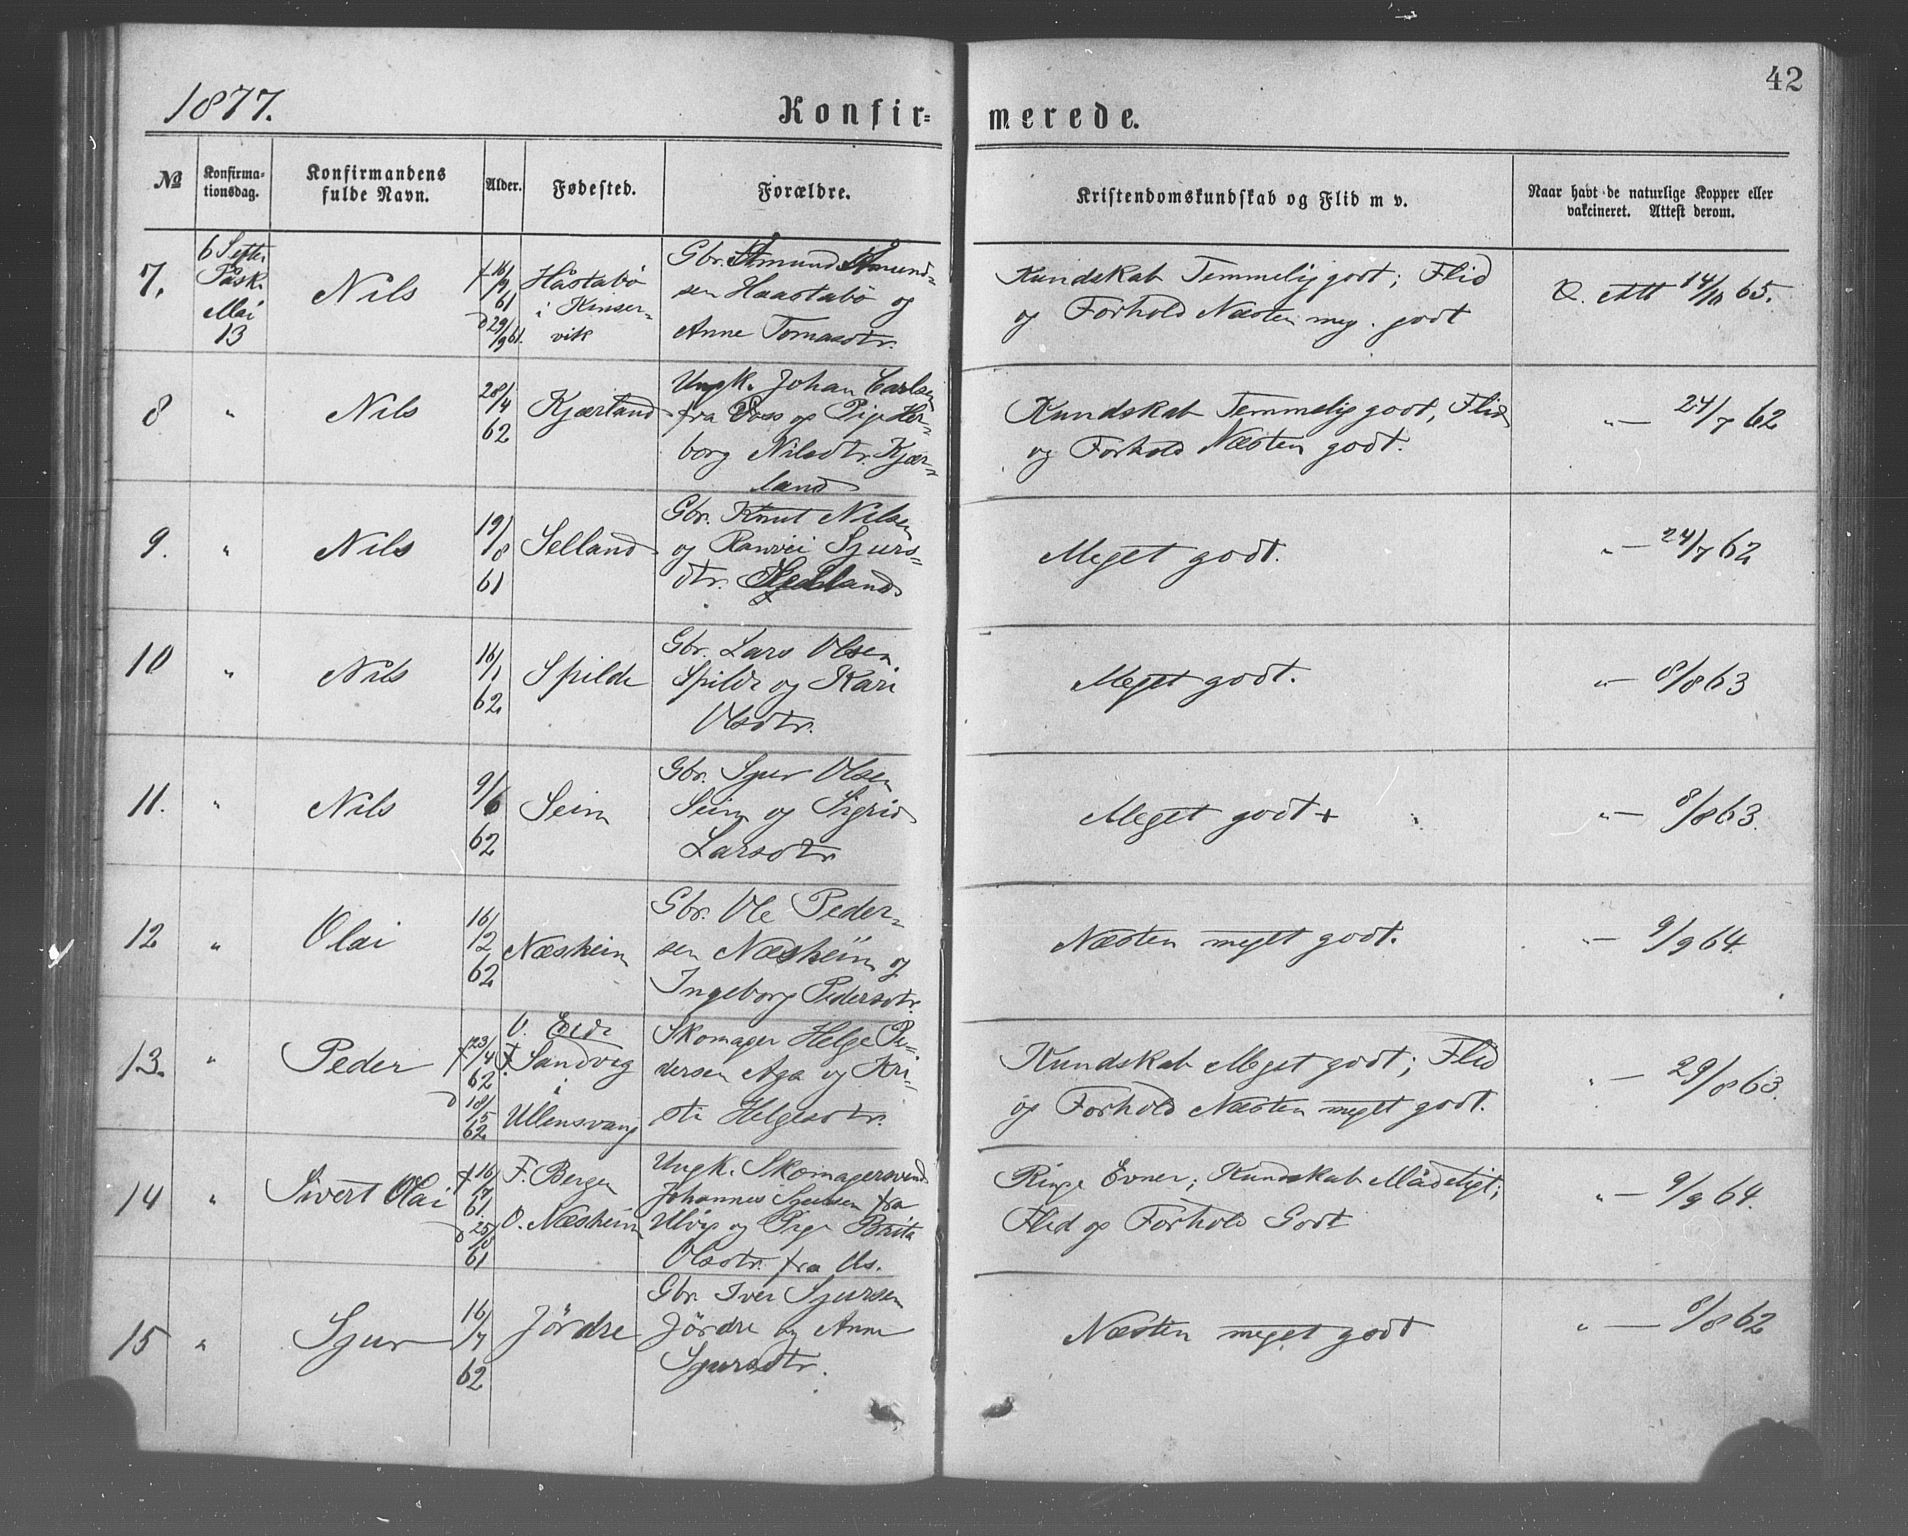 1877.
Konfir-
merede.
42
№
Konfirma-
tionsdag.
Konfirmandens
fulde Navn.
Alder.
Fødested.
Forældre.
Kristendomskundskab og Flid m v.
Naar havt de naturlige Kopper eller
vakcineret. Attest derom.
7.
6 Søn
Påsk.
Mai
13
Nils
f 16/9
61
d 29/9 61.
Håstabø
i Kinser-
vik
Gbr. Åmund Åmund-
sen Haastabø og
Anne Tomasdtr.
Kundskab Temmelig godt; Flid
og Forhold Næsten meg. godt
V. Att 14/10 65.
8
"
Nils
28/4
62
Kjærland
Ungk. Johan Carlsen
fra Voss og Pige Her-
borg Nilsdtr. Kjær-
land
Kundskab Temmelig godt, Flid
og Forhold Næsten godt.
" — 24/7 62
9.
"
Nils
19/8
61
Selland
Gbr. Knut Nilsen
og Ranvei Sjurs-
dtr. Selland
Meget godt.
" — 24/7 62
10
"
Nils
16/1
62
Spilde
Gbr. Lars Olsen
Spilde og Kari
Olsdtr.
Meget godt.
" — 8/8 63
11.
"
Nils
9/6
62
Seim
Gbr. Sjur Olsen
Seim og Sigrid
Larsdtr
Meget godt +
" — 8/8 63.
12
"
Olai
16/12
62
Næsheim
Gbr. Ole Peder-
sen Næsheim og
Ingeborg Pedersdtr.
Næsten meget godt.
" — 9/9 64.
13.
"
Peder
f 23/4
62
d 18/5
62
O. Eide
F. Sandvig
i
Ullensvang
Skomager Helge Pe-
dersen Aga og Kri-
sti Helgesdtr.
Kundskab Meget godt; Flid
og Forhold Næsten meget godt.
" — 29/8 63.
14
"
Sivert Olai
f 16/9
61
d 25/10
61
F. Bergen
O. Næsheim
Ungk. Skomagersvend
Johannes Sjursen fra
Ulvig og Pige Brita
Olsdtr. fra Us.
Ringe Evner; Kundskab Mådeligt;
Flid og Forhold Godt
" — 9/9 64.
15
"
Sjur
16/7
62
Jördre
Gbr. Iver Sjursen
Jördre og Anne
Sjursdtr.
Næsten meget godt
" — 8/8 62